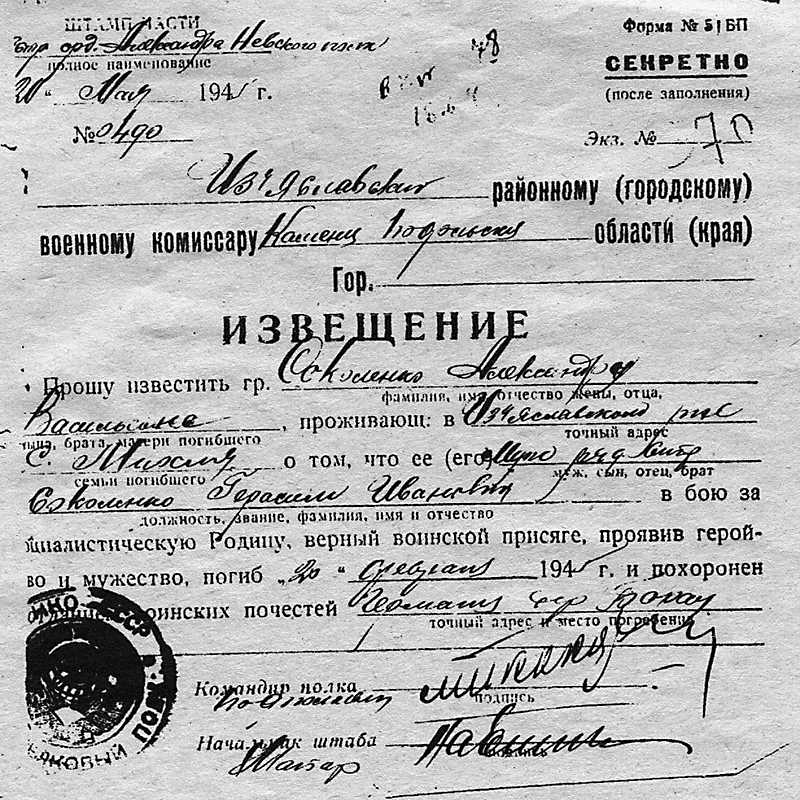 ШТАМП ЧАСТИ
Форма № 5/БП
орд. Александра Невского
48
полное наименование
СЕКРЕТНО
20" Мая 1945 г.
(после заполнения)
№ 0490
Экз. № 70
Изъяславский районному (городскому)
военному комиссару Каменец Подольская области (края)
Гор.
ИЗВЕЩЕНИЕ
Прошу известить гр. Соколенко Александру
фамилия, имя, отчество жены, отца,
Васильевне, проживающ: в Изъяславском р-не
брата, матери погибшего
точный адрес
С. Михля о том, что ее (его) муж ряд.
семьи погибшего
муж, сын, отец, брат
Соколенко Герасим Иванович в бою за
должность, звание, фамилия, имя и отчество
циалистическую Родину, верный воинской присяге, проявив герой-
во и мужество, погиб „20" февраля 1945 г. и похоронен
воинских почестей Германия
точный адрес и место погребения
Командир полка
подпись
Начальник штаба